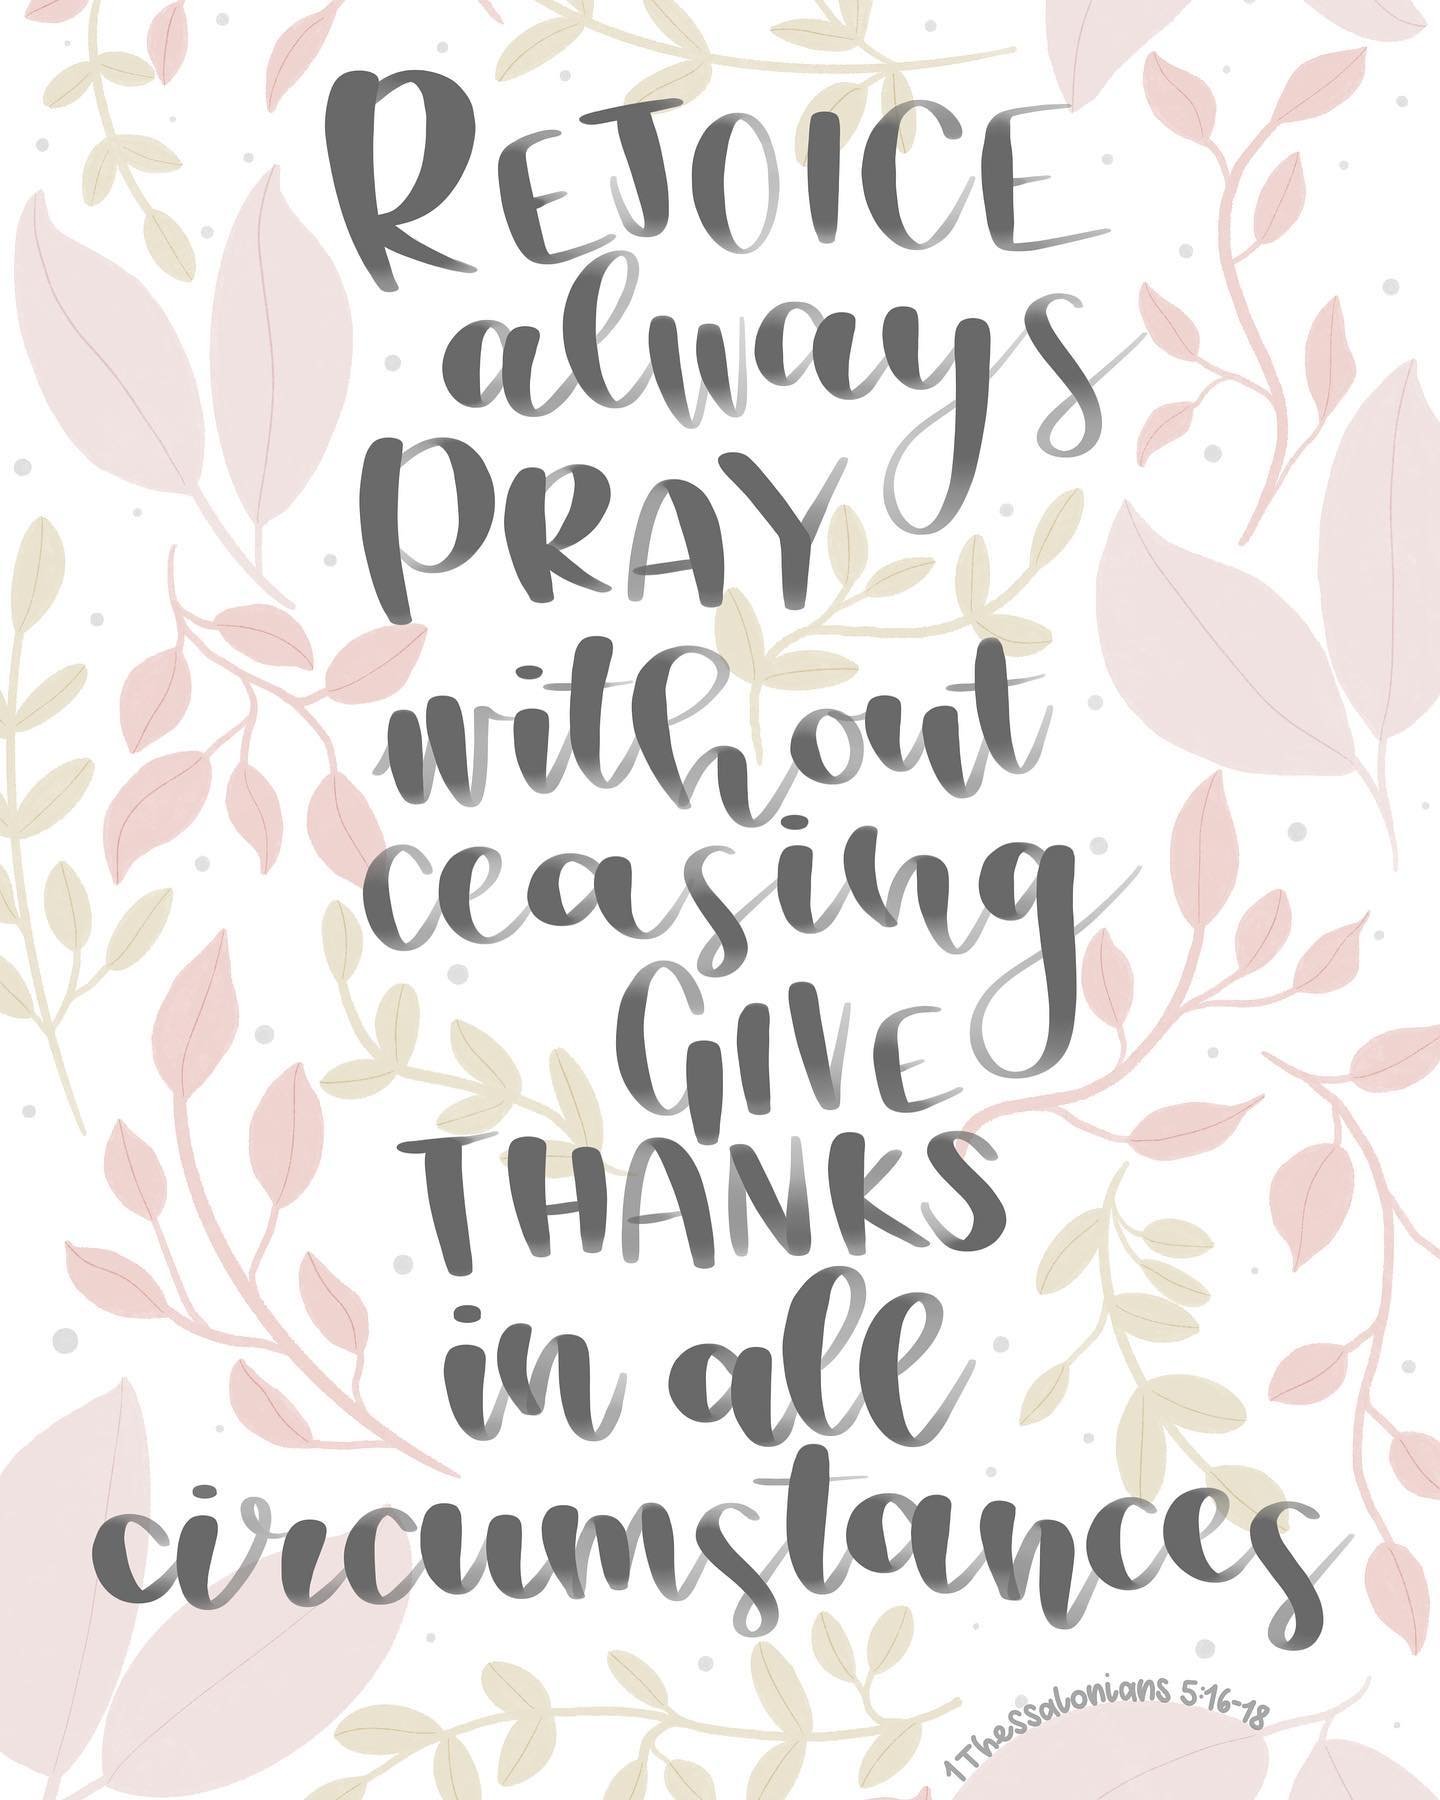 REJOICE
always
PRAY
without
ceasing
GIVE
THANKS
in all
circumstances
1 Thessalonians 5:16-18